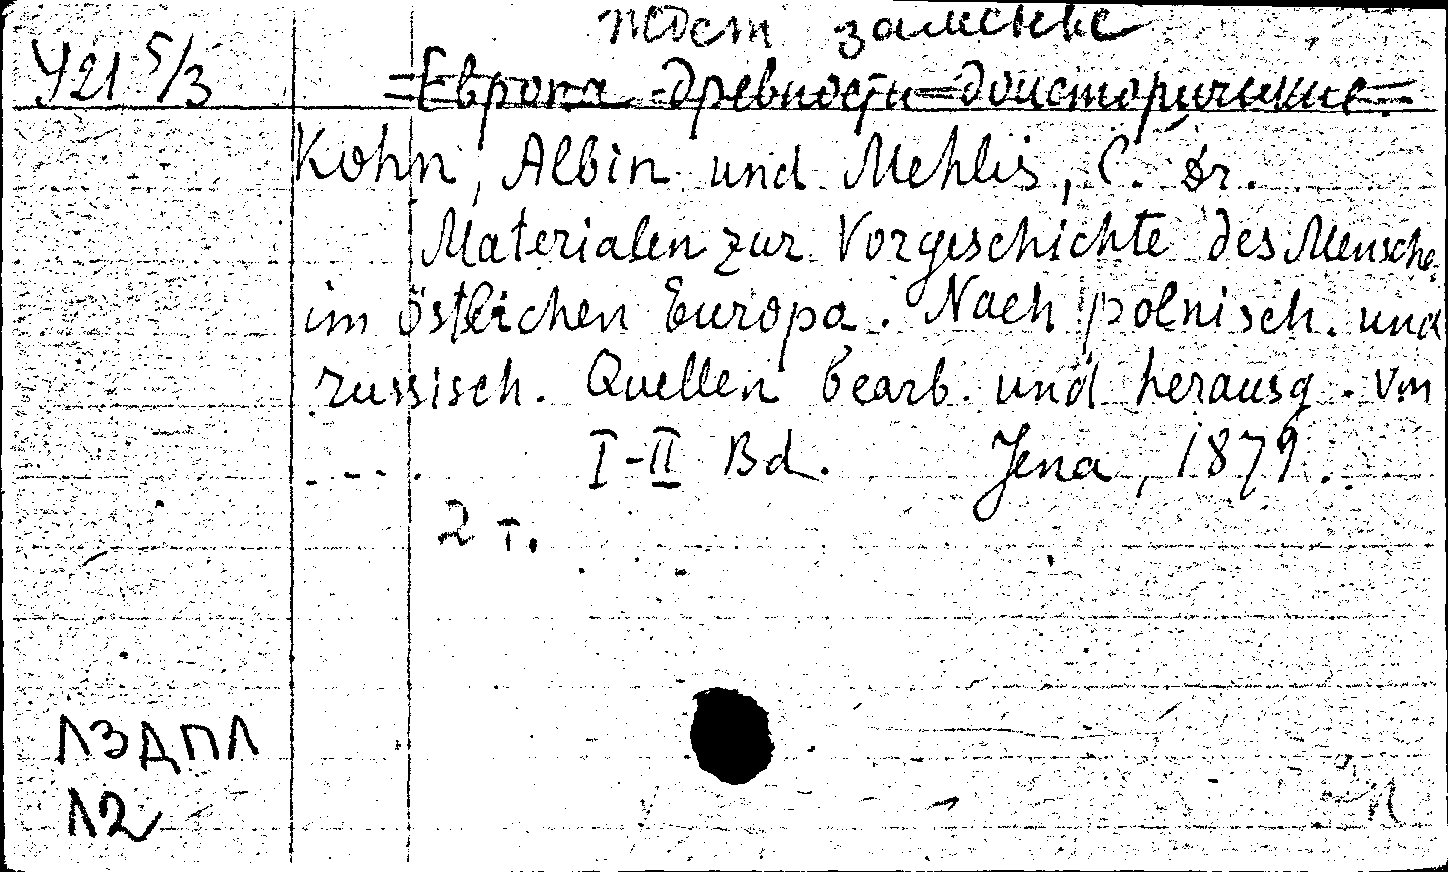 У21 5/3
Европа - древности доисторические
Kohn, Albin und Mehlis, C. Dr.
Materialen zur Vorgeschichte des Mensche
im östlichen Europa. Nach polnisch. und
russisch. Quellen bearb. und herausg. von
---. I-II Bd. Jena, 1879.
2 т.
ЛЗДПЛ
Л2